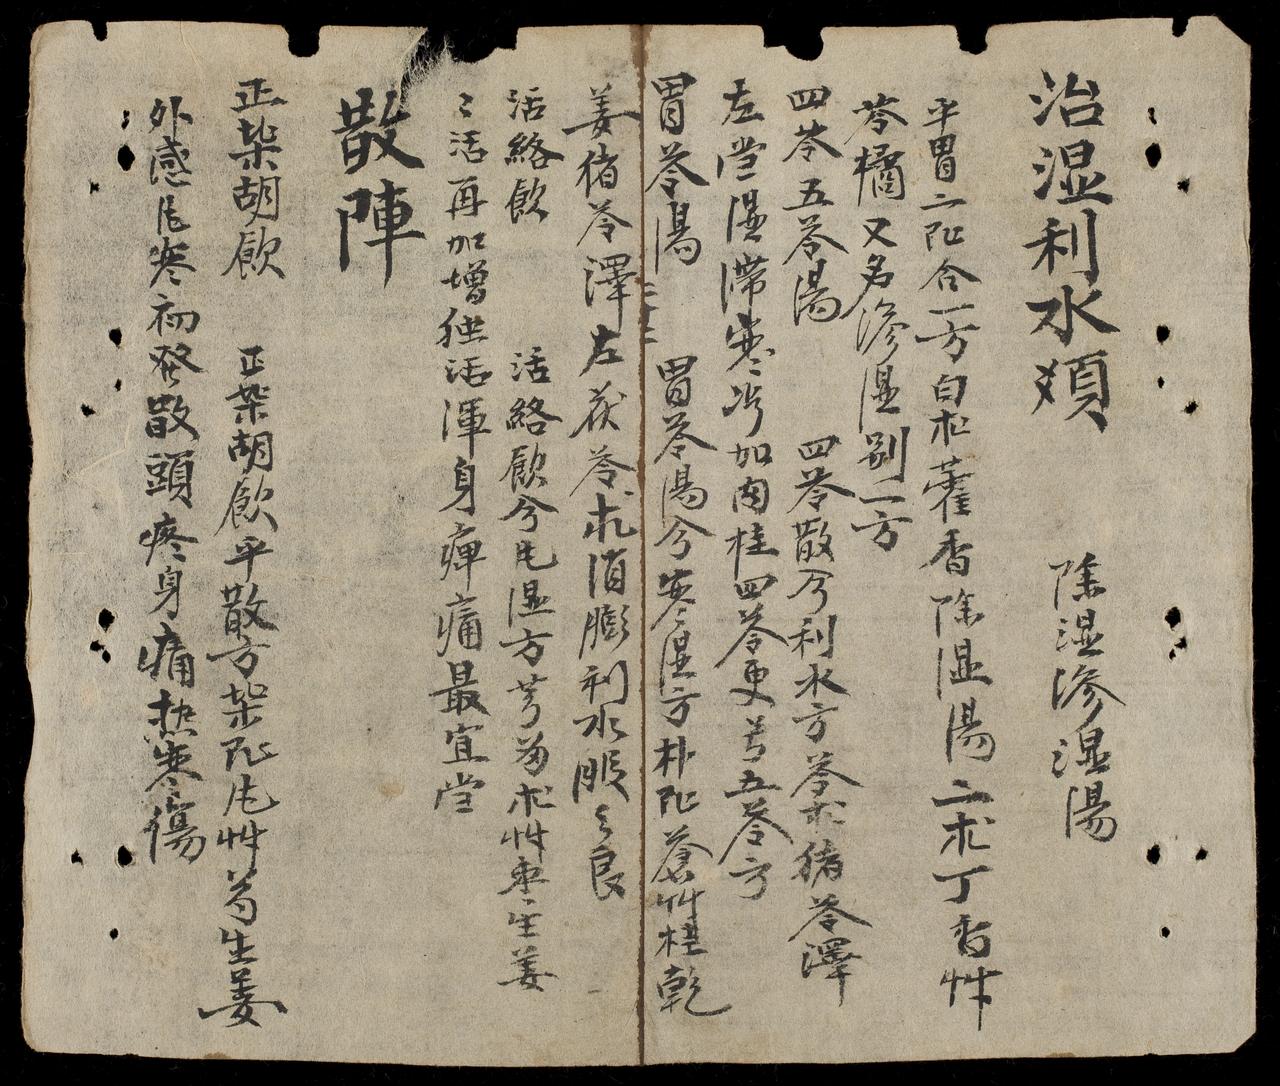 治湿利水類　除湿滲湿湯
平胃二陀合一方白朮藿香除湿湯二朮丁香艸
苓橘又名滲湿别一方
四苓五苓湯　四苓散兮利水方苓朮猪苓澤
左堂湿滞寒冷加肉桂四苓更名五苓方
胃苓湯　胃苓湯兮寒湿方朴陀蒼艸桂乾
姜猪苓澤左茯苓朮消膨利水服之良
活絡飲　活絡飲兮凨湿方芎归朮艸枣生姜
〻活再加增独活渾身痺痛最宜堂
散陣
正柴胡飲　正柴胡飲平散方柴陀凨艸芍生姜
外感凨寒初發散頭疼身痛热寒傷